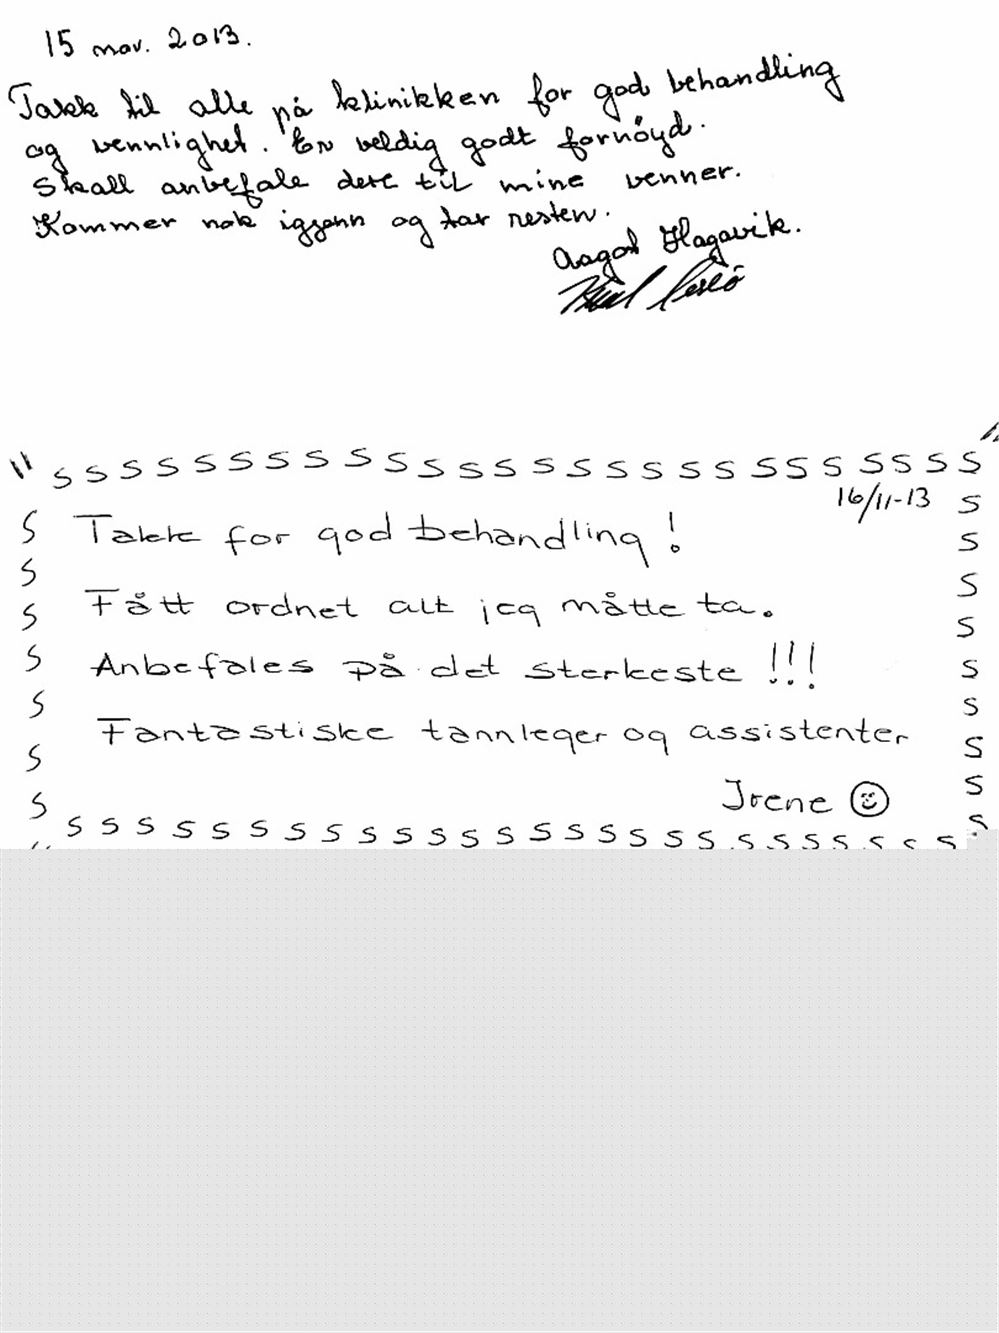 15 nov. 2013.
Takk til alle på klinikken for god behandling
og vennlighet. Er veldig godt fornøyd.
Skall anbefale dere til mine venner.
Kommer nok iggjenn og tar resten.
Aagot Hagavik.
" S S S S S S S S S S S S S S S S S S S S S S S S S S "
16/11-13
Takk for god behandling!
Fått ordnet alt jeg måtte ta.
Anbefales på det sterkeste !!!
Fantastiske tannleger og assistenter
Irene ☺
S S S S S S S S S S S S S S S S S S S S S S S S S